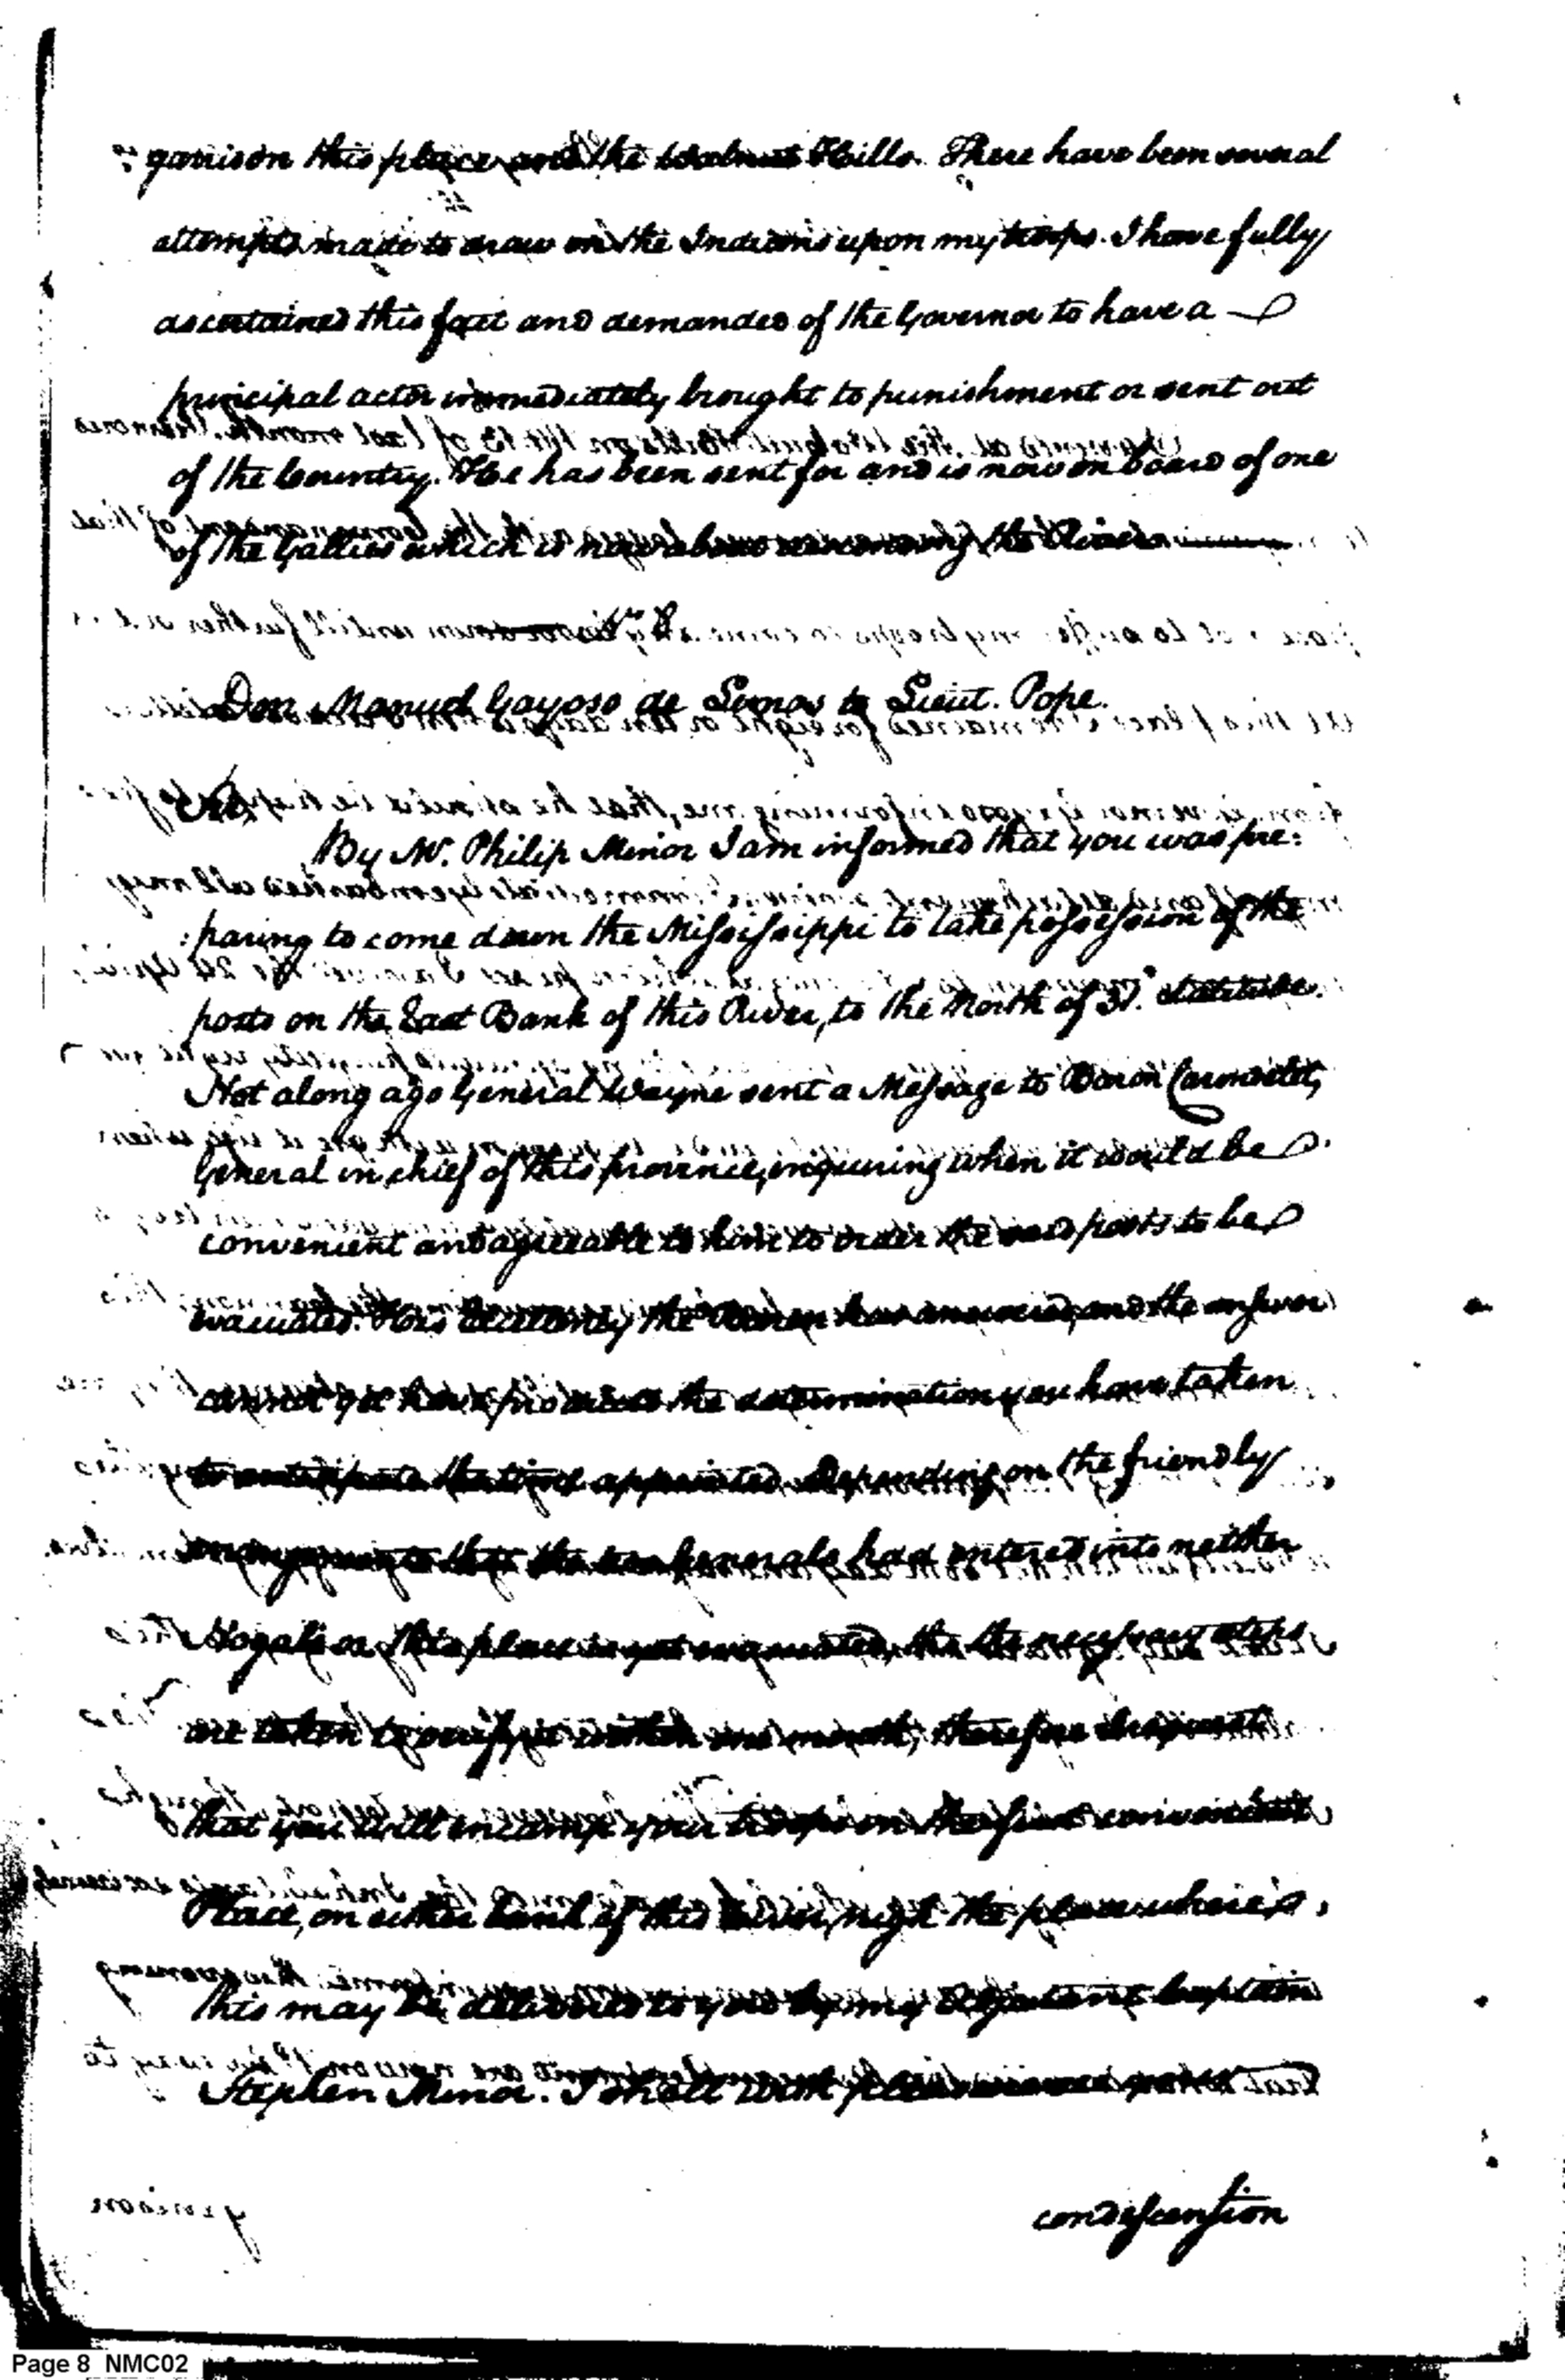 garrison this place and the Walnut Hills. There have been several
attempts made to draw on the Indians upon my troops. I have fully
ascertained this fact and demanded of the Governor to have a
principal actor immediately brought to punishment or sent out
of the Country. He has been sent for and is now on board of one
of the Gallies which is now about descending the River.
Don Manuel Gayoso de Lemos to Lieut. Pope.
Sir
By Mr. Philip Minor I am informed that you was pre:
:paring to come down the Mississippi to take possession of the
posts on the East Bank of this River, to the North of 31.° Latitude.
Not along ago General Wayne sent a Message to Baron Carondelet,
General in chief of this province, inquiring when it would be
convenient and agreeable to him to order the said posts to be
evacuated. His Excellency the Baron has answered, and the answer
cannot yet have produced the determination you have taken
to anticipate the time appointed. Depending on the friendly
that the two Generals had entered into neither
Nogales or this place is yet evacuated, tho the necessary steps
are taken to within one month; therefore I request
that you will encamp your troops on the first convenient
Place, on either bank of this River, nigh the place where
this may be delivered to you by my Adjutant Captain
Stephen Minor. I shall with
condescension
Page 8 NMC02